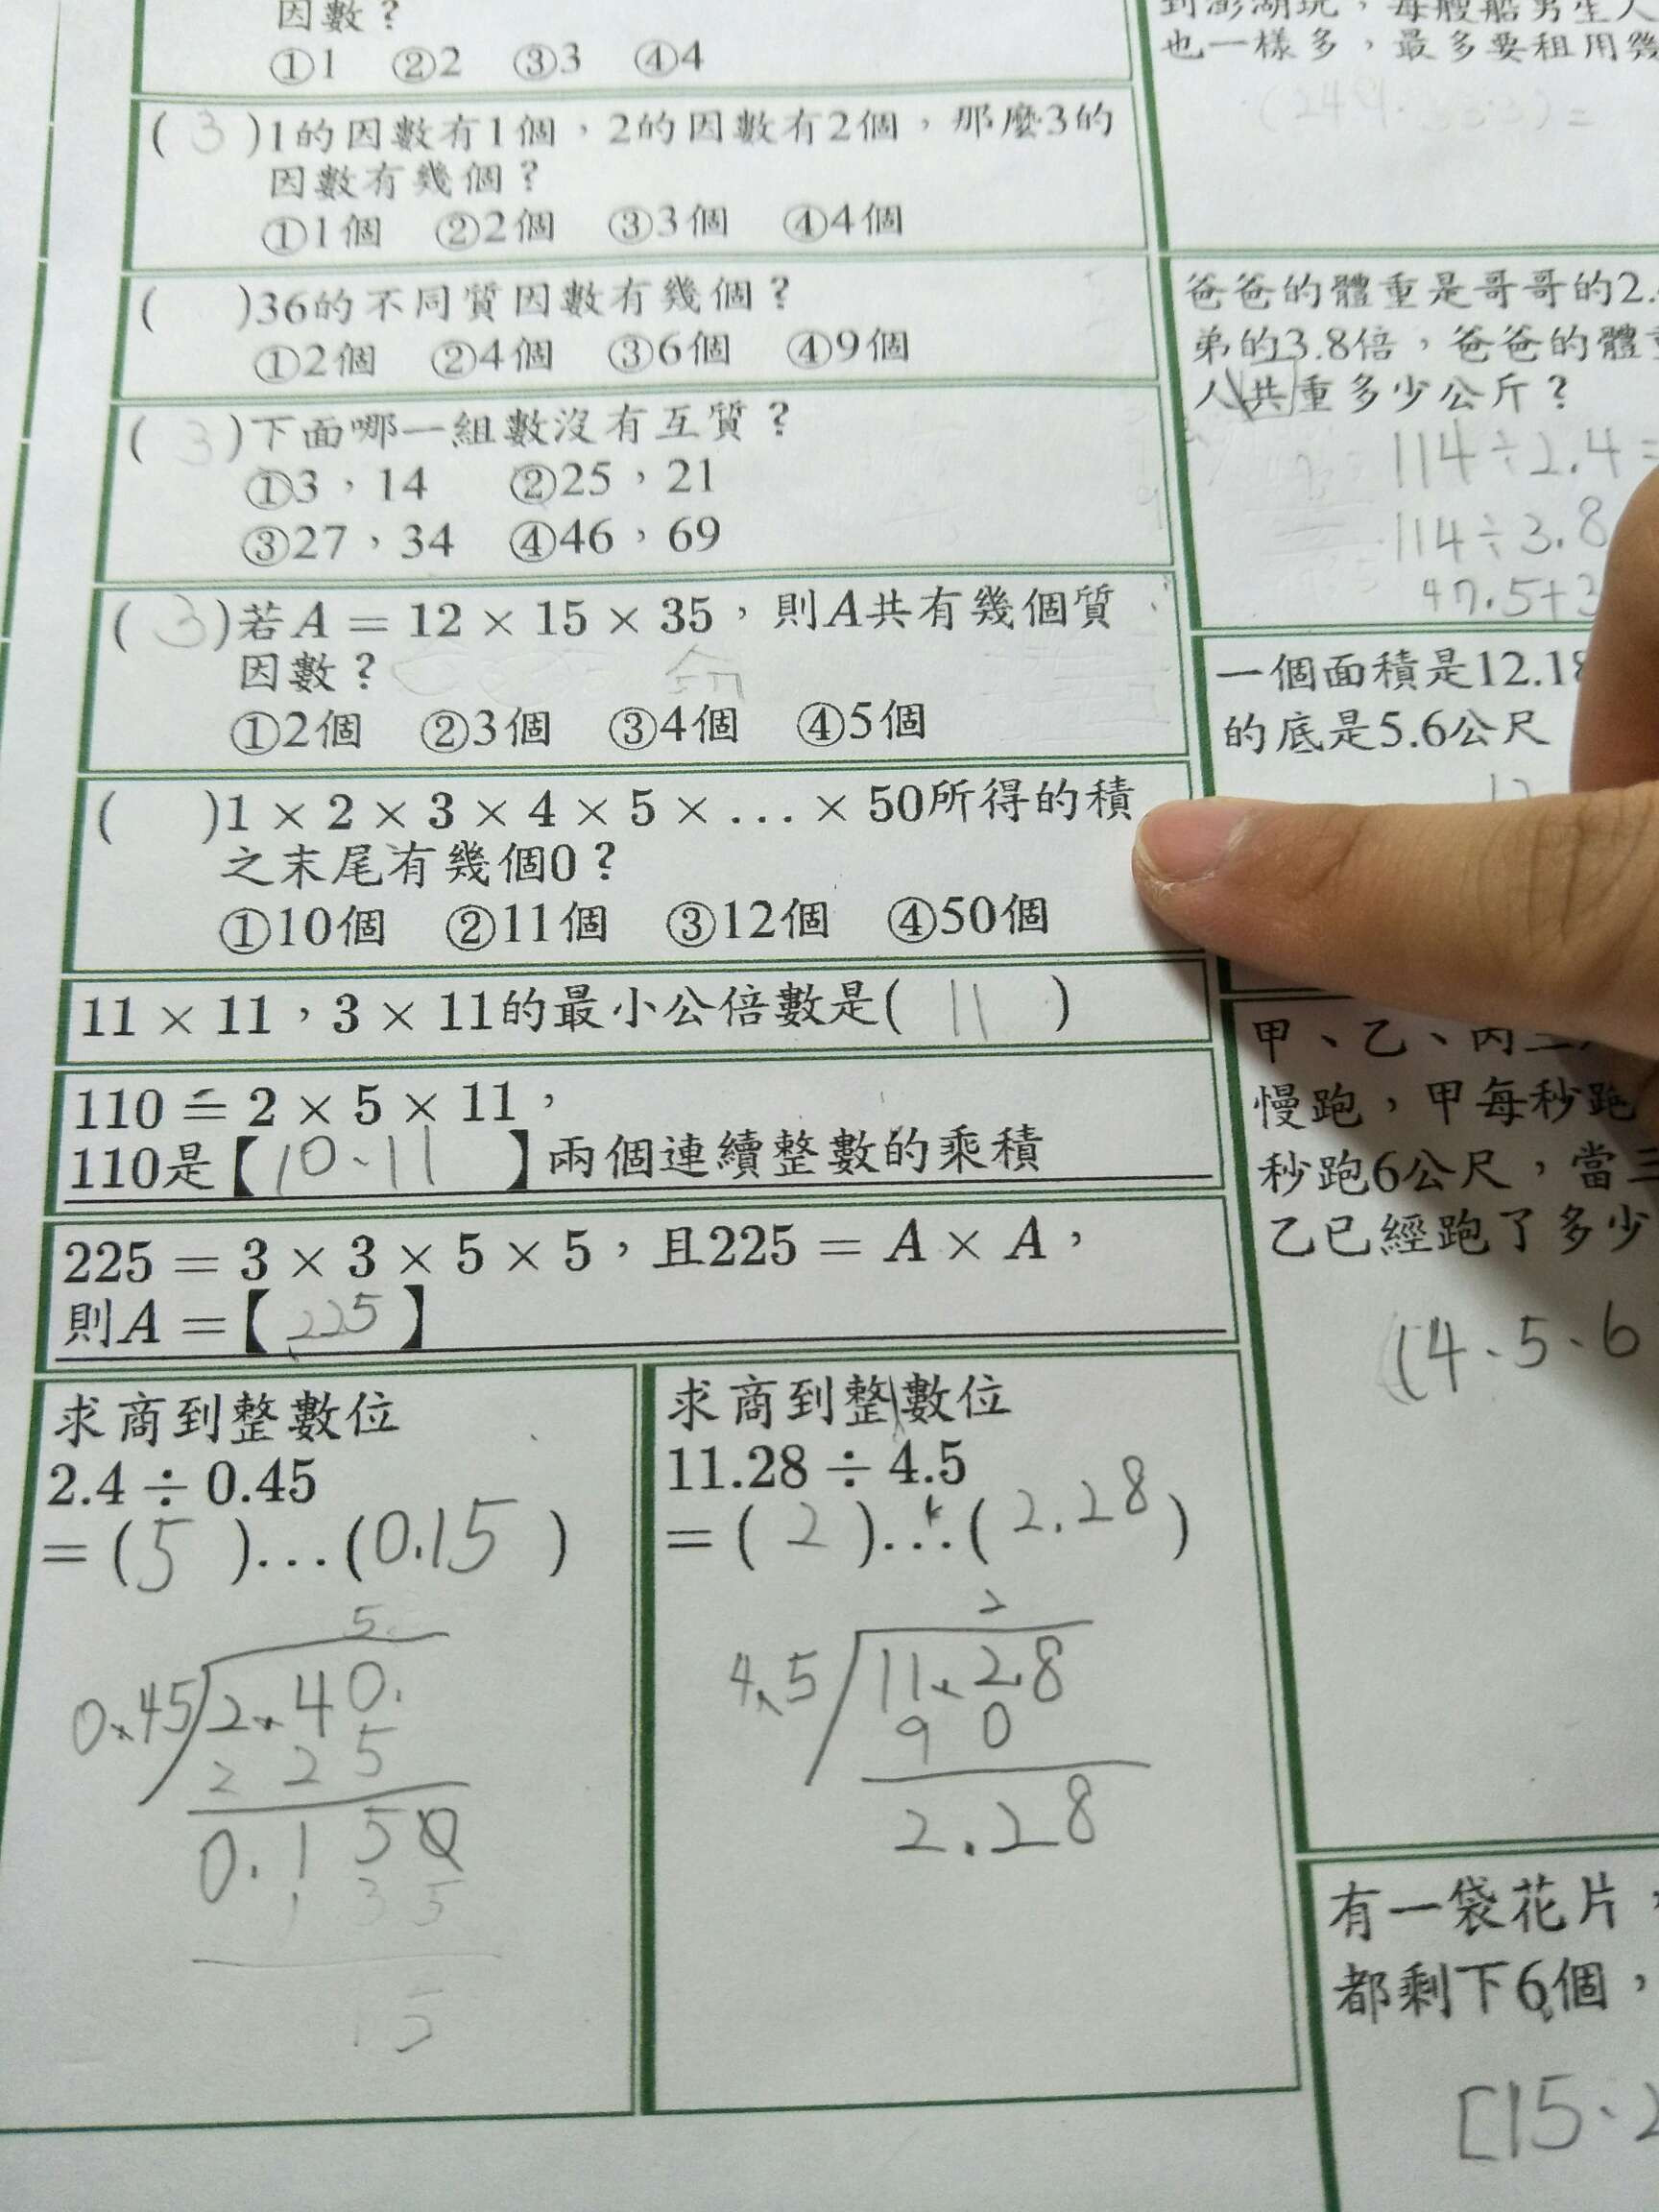 因數？
①1 ②2 ③3 ④4
( 3 )1的因數有1個，2的因數有2個，那麼3的
因數有幾個？
①1個 ②2個 ③3個 ④4個
( )36的不同質因數有幾個？
①2個 ②4個 ③6個 ④9個
( 3 )下面哪一組數沒有互質？
①3，14 ②25，21
③27，34 ④46，69
( 3 )若A = 12 × 15 × 35，則A共有幾個質
因數？
①2個 ②3個 ③4個 ④5個
( )1 × 2 × 3 × 4 × 5 × … × 50所得的積
之末尾有幾個0？
①10個 ②11個 ③12個 ④50個
11 × 11，3 × 11的最小公倍數是( 11 )
110 = 2 × 5 × 11，
110是【10、11】兩個連續整數的乘積
225 = 3 × 3 × 5 × 5，且225 = A × A，
則A =【225】
求商到整數位
2.4 ÷ 0.45
= (5)…(0.15)
5
0.45 2.40
2 2 5
0.150
1 3 5
1 5
求商到整數位
11.28 ÷ 4.5
= (2)…(2.28)
2
4.5 11.28
9 0
2.28
到澎湖玩，每艘船男生人
也一樣多，最多要租用幾
爸爸的體重是哥哥的2.
弟的3.8倍，爸爸的體重
人共重多少公斤？
114÷2.4=
114÷3.8
47.5+3
一個面積是12.18
的底是5.6公尺
甲、乙、丙三
慢跑，甲每秒跑
秒跑6公尺，當三
乙已經跑了多少
(4、5、6
有一袋花片，
都剩下6個，
[15、2